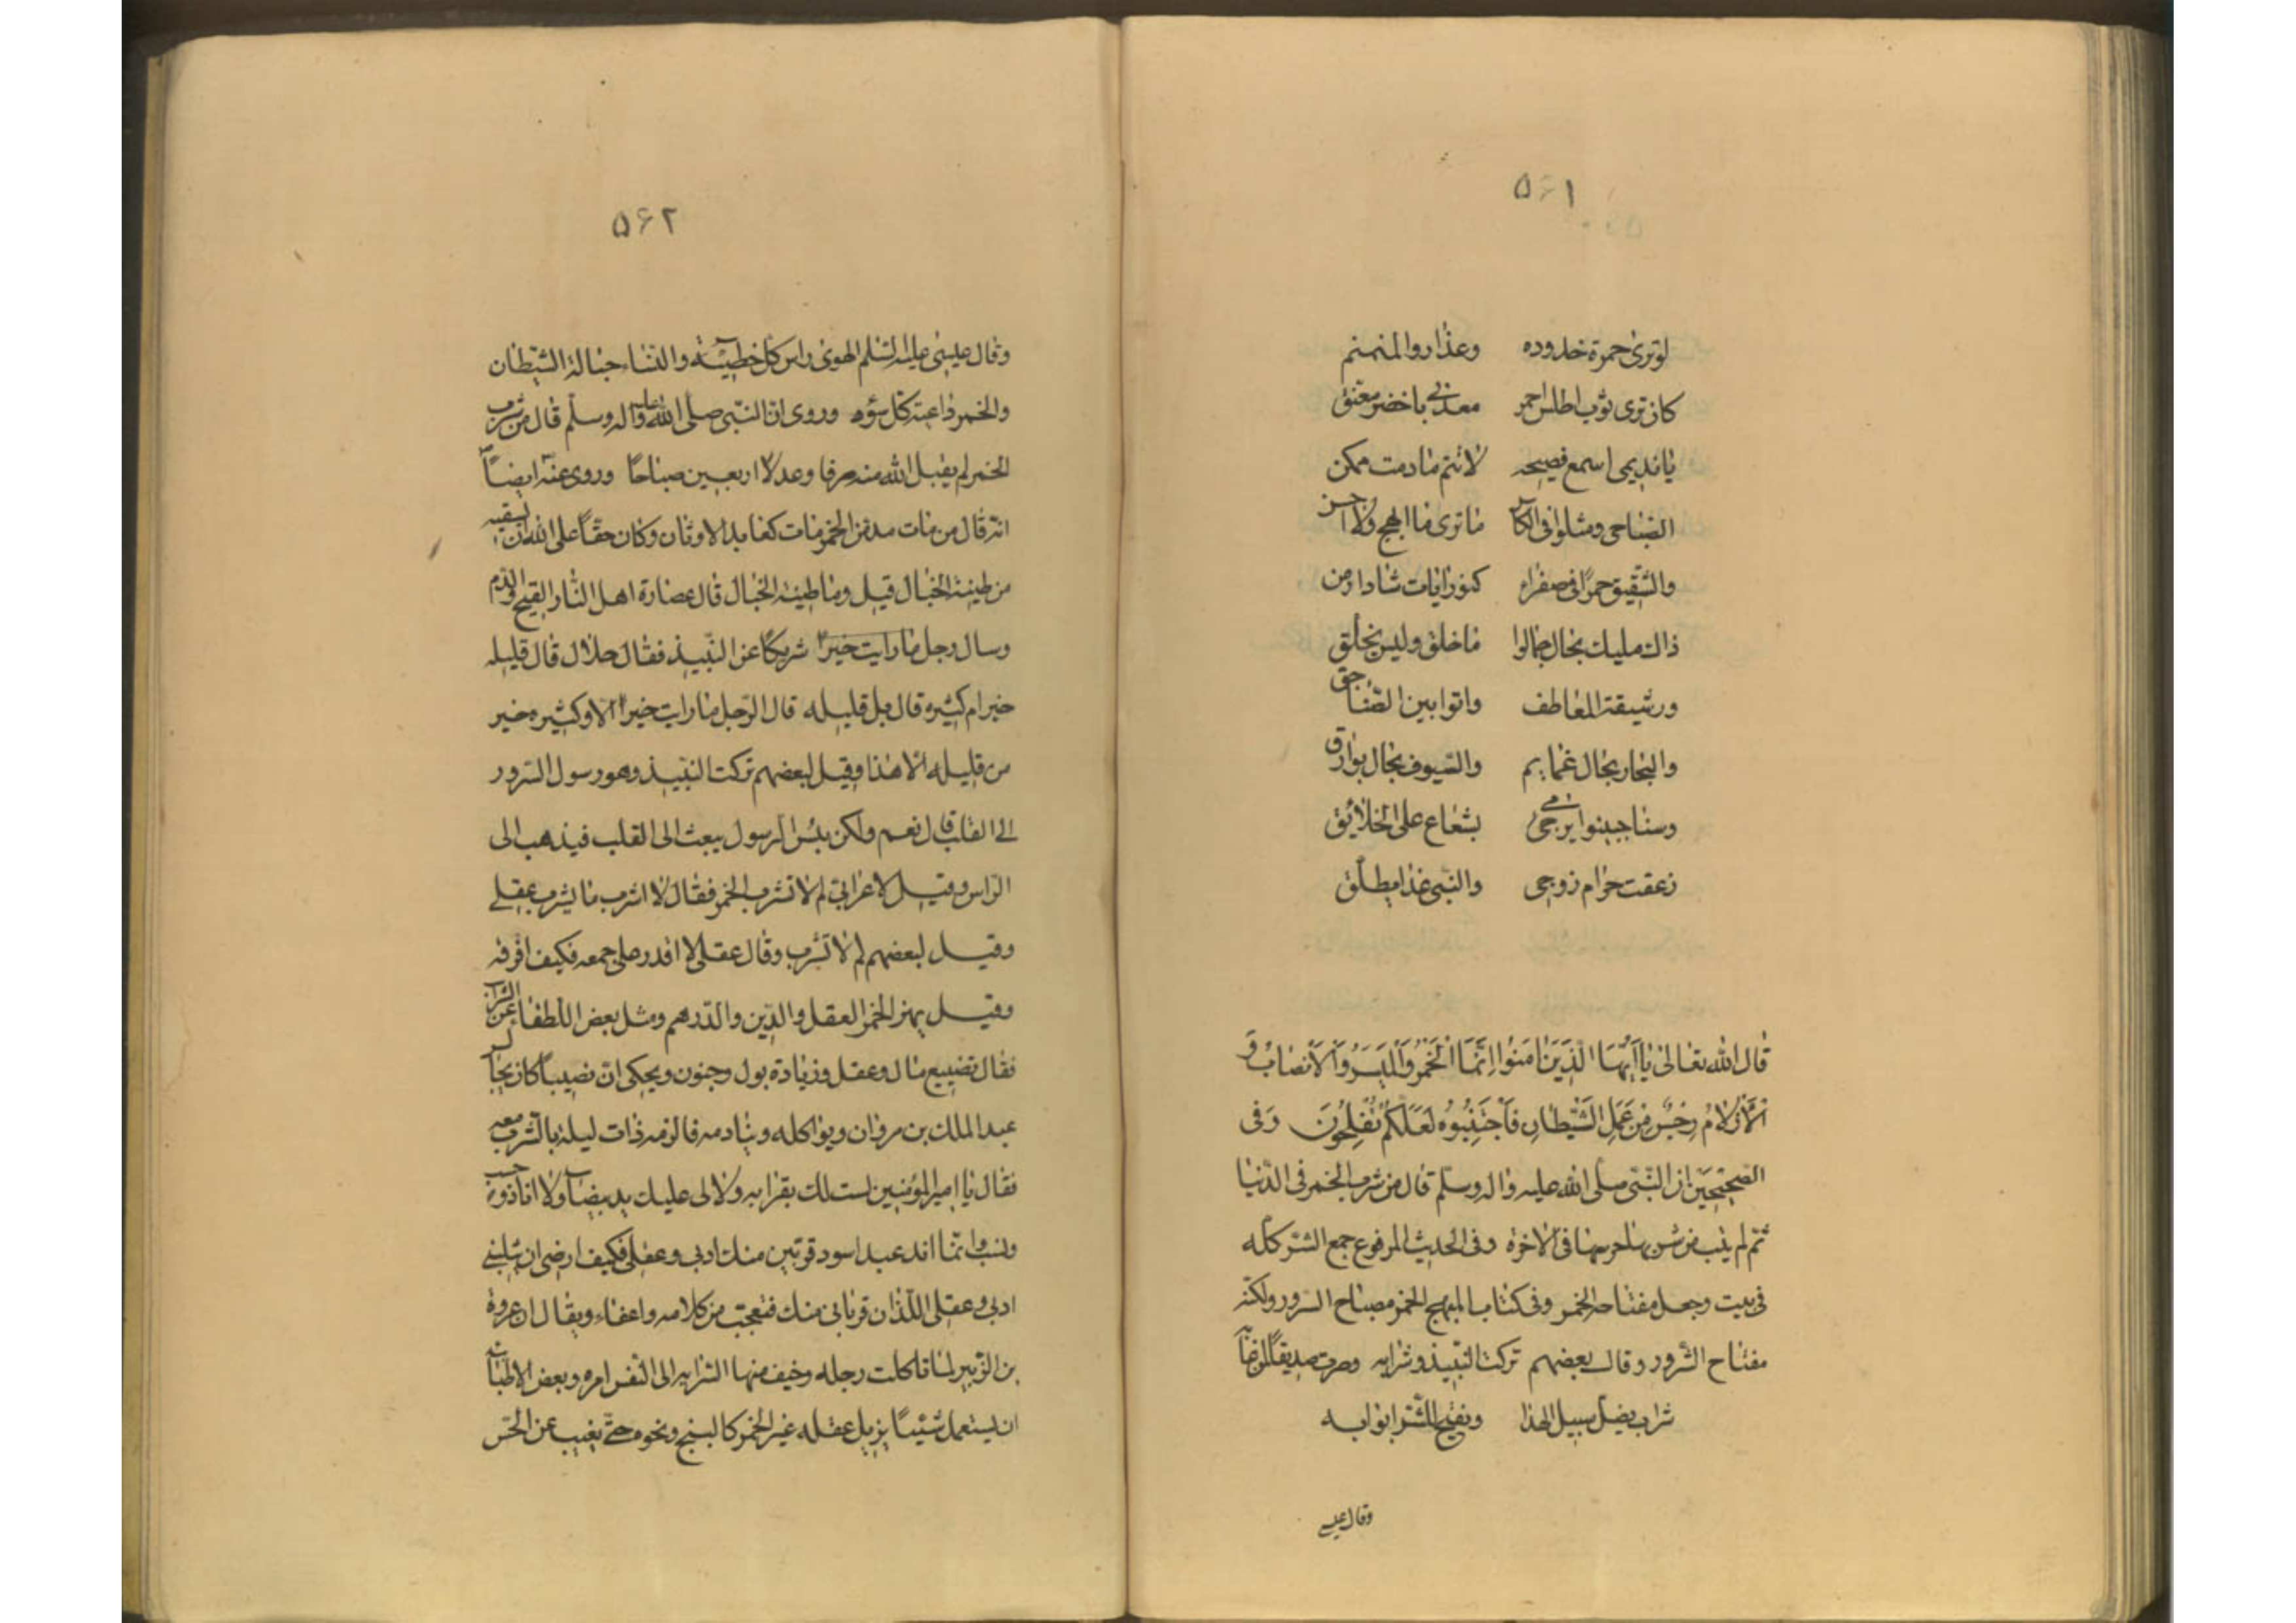 ۵۶۱
لوترى حمرة خدوده وعذاروا المنمنم
كان ترى ثوب اطلس احمر معدنى باخضر معتق
يا نديمى اسمع فصيحه لا تنم مادمت ممكن
الضاحى ومثلوا فى الكاس ما ترى ما ابهج ولا احسن
والشقيق حمرا فى صفراء كنوز رايات شاد ارمن
ذاك مليك بحال جمالوا ما خلق وليس يخلق
ورشيقة المعاطف واتوا بين الصناجق
والبخار بحال غمايم والسيوف بحال بوارق
وسنا جبينوا يرمى بشعاع على الخلائق
زعقت حرام زوجى والنبى غدا مطلق
قال الله تعالى يا أيها الذين امنوا إنما الخمر والميسر والأنصاب و
الأزلام رجس من عمل الشيطان فاجتنبوه لعلكم تفلحون وفى
الصحيحين ان النبى صلى الله عليه واله وسلم قال من شرب الخمر فى الدنيا
ثم لم يتب من شربها حرمها فى الاخرة وفى الحديث المرفوع جمع الشر كله
فى بيت وجعل مفتاحه الخمر وفى كتاب المبهج الخمر مصباح السرور ولكنه
مفتاح الشرور وقال بعضهم تركت النبيذ وشرابه وصرت صديقا لمن عابه
شراب يضل سبيل الهدا ويفتح للشر ابوابه
وقال عيسى
۵۶۲
وقال عيسى عليه السلم الهوى راس كل خطيئة والنساء حبالة الشيطان
والخمر داعية كل سوء وروى ان النبى صلى الله عليه واله وسلم قال من شرب
الخمر لم يقبل الله منه صرفا وعدلا اربعين صباحا وروى عنه ايضا
انه قال من مات مدمن الخمر مات كعابد الاوثان وكان حقا على الله ان يسقيه
من طينة الخبال قيل وما طينة الخبال قال عصارة اهل النار القيح والدم
وسال رجل ما رايت خيرا شريكا عن النبيذ فقال حلال قال قليله
خير ام كثيره قال بل قليله قال الرجل ما رايت خيرا الا وكثيره خير
من قليله الا هذا وقيل لبعضهم تركت النبيذ وهو رسول السرور
الى القلب قال نعم ولكن بئس الرسول يبعث الى القلب فيذهب الى
الراس وقيل لاعرابى لم لا تشرب الخمر فقال لا اشرب ما يشرب عقلى
وقيل لبعضهم لم لا تشرب وقال عقلى لا اقدر على جمعه فكيف افرقه
وقيل يهزا الخمر العقل والدين والدرهم ومثل بعض اللطفا عن الشراب
فقال تضييع مال وعقل وزيادة بول وجنون ويحكى ان نصيبا كان يجالس
عبد الملك بن مروان ويواكله وينادمه فالزمه ذات ليلة بالشرب معه
فقال يا امير المؤمنين لست لك بقرابه ولا لى عليك يد بيضاء ولا انا ذو حسب
ونسب وانما انا عبد اسود قربنى منك ادبى وعقلى فكيف ارضى ان تسلبنى
ادبى وعقلى اللذان قربانى منك فتعجب من كلامه واعفاه ويقال ان عروة
بن الزبير لما تاكلت رجله وخيف منها السرايه الى النفس امره بعض الاطباء
ان يستعمل شيئا يزيل عقله غير الخمر كالبنج ونحوه حتى يغيب عن الحس